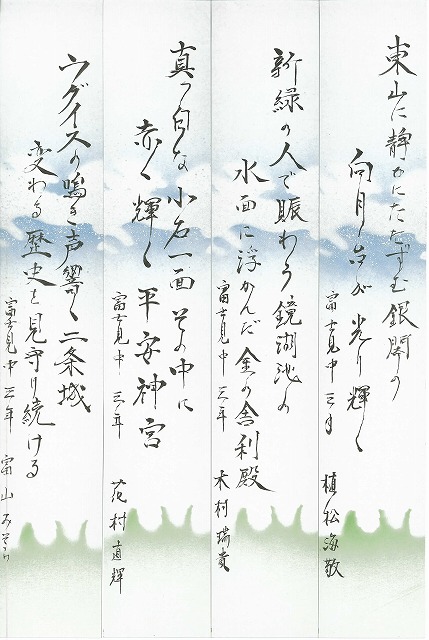 東山に静かにたたずむ銀閣の
向月台が光り輝く
富士見中 三年 植松海敬
新緑の人で賑わう鏡湖池の
水面に浮かんだ金の舎利殿
富士見中 三年 木村瑞貴
真っ白な小石一面その中に
赤く輝く平安神宮
富士見中 三年 花村直輝
ウグイスの鳴き声響く二条城
変わる歴史を見守り続ける
富士見中 三年 富山みそら